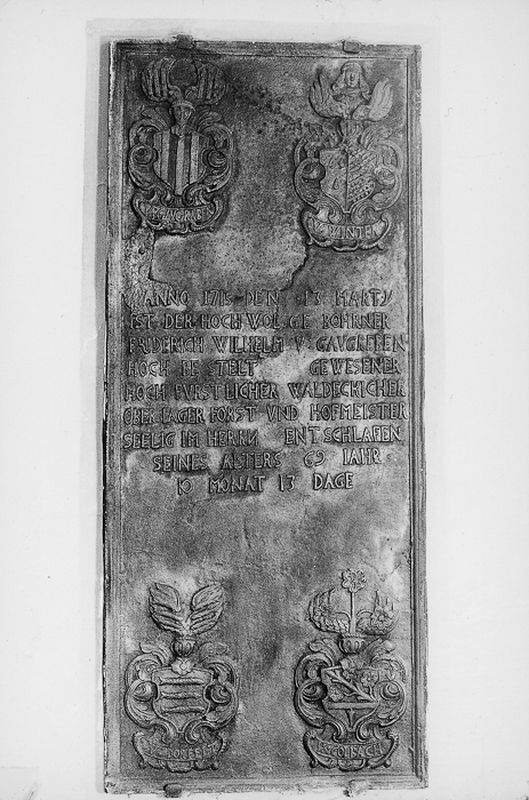 V. WINTH
ANNO 1715 DEN 13 MARTJ
IST DER HOCH WOL GE BOHRNER
FRIDERICH WILHELM V GAVGREBEN
HOCH BE STELT GEWESENER
HOCH FVRSTLICHER WALDECKICHER
OBER IAGER FORST VND HOFMEISTER
SEELIG IM HERRN ENT SCHLAFEN
SEINES ALTERS 69 IAHR
10 MONAT 13 DAGE